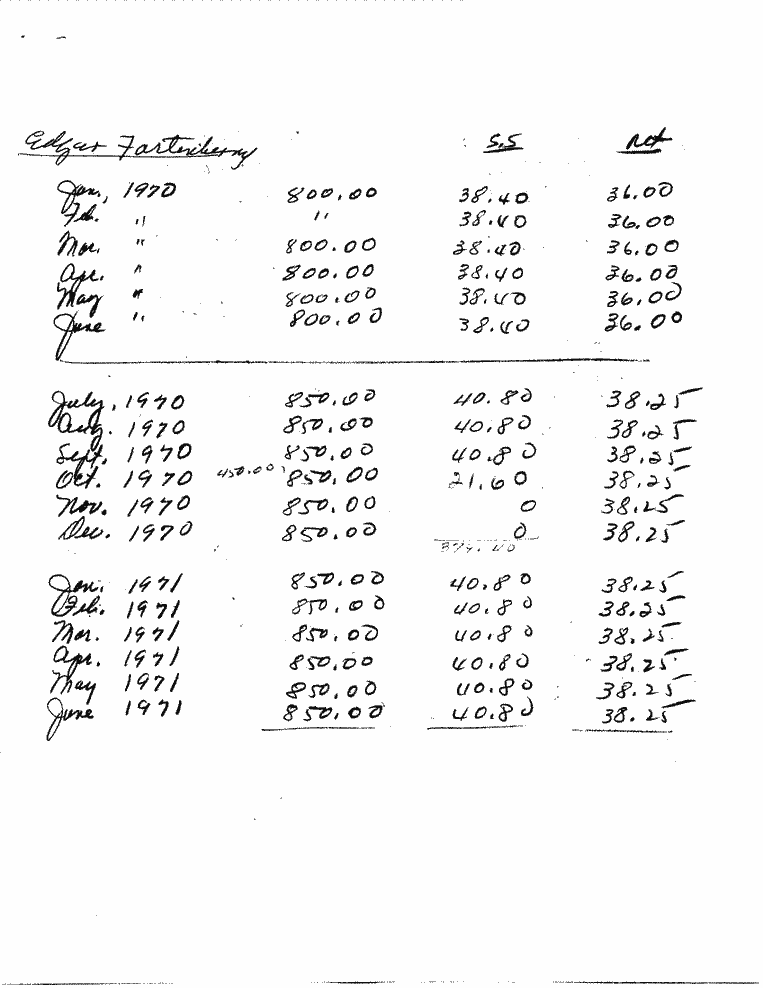 Edgar S.S Ret
Jan., 1970 800.00 38.40 36.00
Feb. " " 38.40 36.00
Mar. " 800.00 38.40 36.00
Apr. " 800.00 38.40 36.00
May " 800.00 38.40 36.00
June " 800.00 38.40 36.00
July, 1970 850.00 40.80 38.25
Aug. 1970 850.00 40.80 38.25
Sept. 1970 850.00 40.80 38.25
Oct. 1970 450.00 850.00 21.60 38.25
Nov. 1970 850.00 0 38.25
Dec. 1970 850.00 0 38.25
374.40
Jan. 1971 850.00 40.80 38.25
Feb. 1971 850.00 40.80 38.25
Mar. 1971 850.00 40.80 38.25
Apr. 1971 850.00 40.80 38.25
May 1971 850.00 40.80 38.25
June 1971 850.00 40.80 38.25